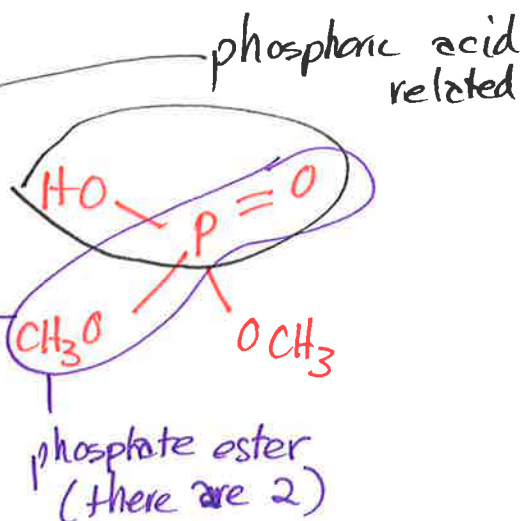 phosphoric acid
related
HO
P = O
CH3O
OCH3
phosphate ester
(there are 2)